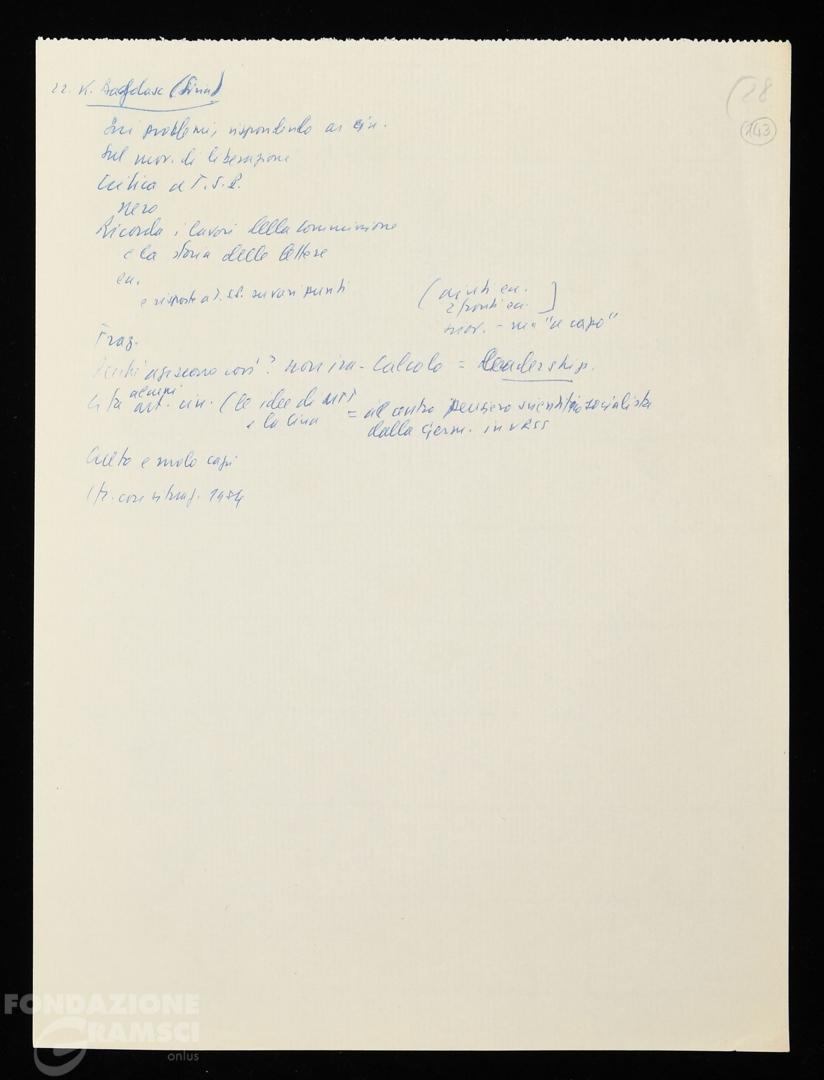 22. K. Bagdasc (Siria)
28
143
Sui problemi, rispondendo ai cin.
Sul mov. di liberazione
Critica a T.S.P.
nero
Ricorda i lavori della commissione
e la storia delle lettere
eu.
e risposte a su vari punti
(aiuti eu.
2 fronti eu. ]
mov. - "a capo"
Fraz.
agiscono così? non ira - calcolo = leadership.
Cita alcuni art. cin. (le idee di MT)
e la Cina = il centro pensiero scientifico socialista
dalla Germ. in URSS
Culto e ruolo capi
1984
FONDAZIONE
GRAMSCI
onlus